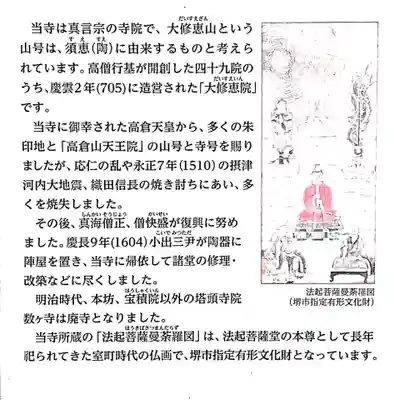 当寺は真言宗の寺院で、大修恵山という
山号は、須恵(陶)に由来するものと考えら
れています。高僧行基が開創した四十九院の
うち、慶雲2年(705)に造営された「大修恵院」
です。
当寺に御幸された高倉天皇から、多くの朱
印地と「高倉山天王院」の山号と寺号を賜り
ましたが、応仁の乱や永正7年(1510)の摂津
河内大地震、織田信長の焼き討ちにあい、多
くを焼失しました。
その後、真海僧正、僧快盛が復興に努め
ました。慶長9年(1604)小出三尹が陶器に
陣屋を置き、当寺に帰依して諸堂の修理・
改築などに尽くしました。
明治時代、本坊、宝積院以外の塔頭寺院
数ヶ寺は廃寺となりました。
当寺所蔵の「法起菩薩曼荼羅図」は、法起菩薩堂の本尊として長年
祀られてきた室町時代の仏画で、堺市指定有形文化財となっています。
法起菩薩曼荼羅図
(堺市指定有形文化財)